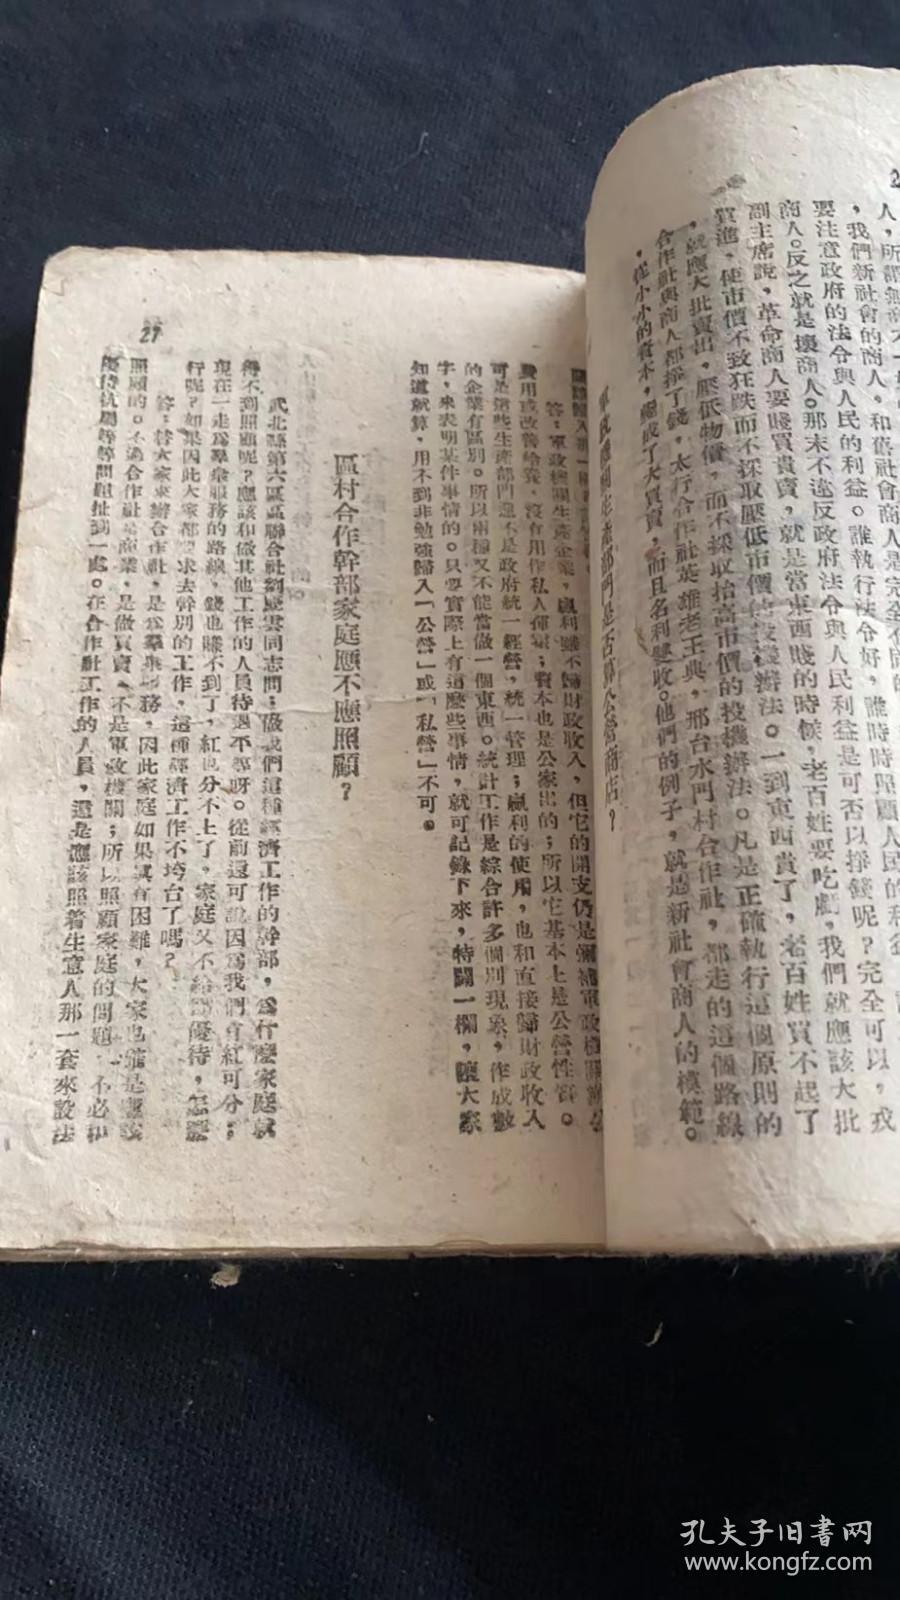 人，所謂無商
，我們新社會的商人，和舊社會商人是完全不同的
要注意政府的法令與人民的利益。誰執行法令好，誰時時照顧人民的利益
商人。反之就是壞商人。那末不違反政府法令與人民利益是可否以掙錢呢？完全可以，我
副主席說，革命商人要賤買貴賣，就是當東西賤的時候，老百姓要吃虧，我們就應該大批
買進，使市價不致狂跌而不採取壓低市價的投機辦法。一到東西貴了，老百姓買不起了
，就應大批賣出，壓低物價，而不採取抬高市價的投機辦法。凡是正確執行這個原則的
合作社與商人都掙了錢，太行合作社英雄老王典，邢台水門村合作社，都走的這個路線
，從小小的資本，變成了大買賣，而且名利雙收。他們的例子，就是新社會商人的模範。
部門是否算公營商店？
27
答：軍政機關生產企業，贏利雖不歸財政收入，但它的開支仍是彌補軍政機關辦公
費用或改善給養，沒有用作私人揮霍；資本也是公家出的；所以它基本上是公營性質。
可是這些生產部門還不是政府統一經營，統一管理；贏利的使用，也和直接歸財政收入
的企業有區別。所以兩種又不能當做一個東西。統計工作是綜合許多個別現象，作成數
字，來表明某件事情的。只要實際上有這麼些事情，就可記錄下來，特闢一欄，讓大家
知道就算，用不到非勉強歸入「公營」或「私營」不可。
區村合作幹部家庭應不應照顧？
武北縣第六區區聯合社劉慶雲同志問：做我們這種經濟工作的幹部，為什麼家庭就
得不到照顧呢？應該和做其他工作的人員待遇不等呀。從前還可說因為我們有紅可分；
現在一走為羣衆服務的路線，錢也賺不到了，紅也分不上了，家庭又不給優待，怎麼
行呢？如果因此大家都要求去幹別的工作，這種經濟工作不垮台了嗎？
答：替大家來辦合作社，是為羣衆服務，因此家庭如果真有困難，大家也確是應該
照顧的。不過合作社是商業，是做買賣，不是軍政機關；所以照顧家庭的問題，不必和
優待抗屬等等問題扯到一處。在合作社工作的人員，還是應該照着生意人那一套來設法
孔夫子旧书网
www.kongfz.com